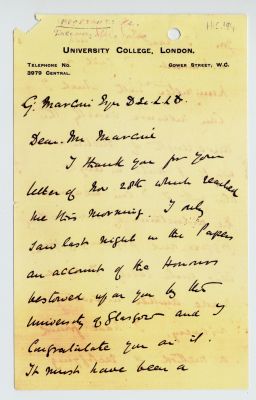 UNIVERSITY COLLEGE, LONDON.
TELEPHONE NO.
3979 CENTRAL.
GOWER STREET, W.C.
G. Marconi Esqre D.Sc LL.D.
Dear Mr Marconi
I thank you for your
letter of Nov 28th which reached
me this morning. I only
saw last night in the Papers
an account of the Honours
bestowed upon you by the
University of Glasgow and I
Congratulate you on it.
It must have been a